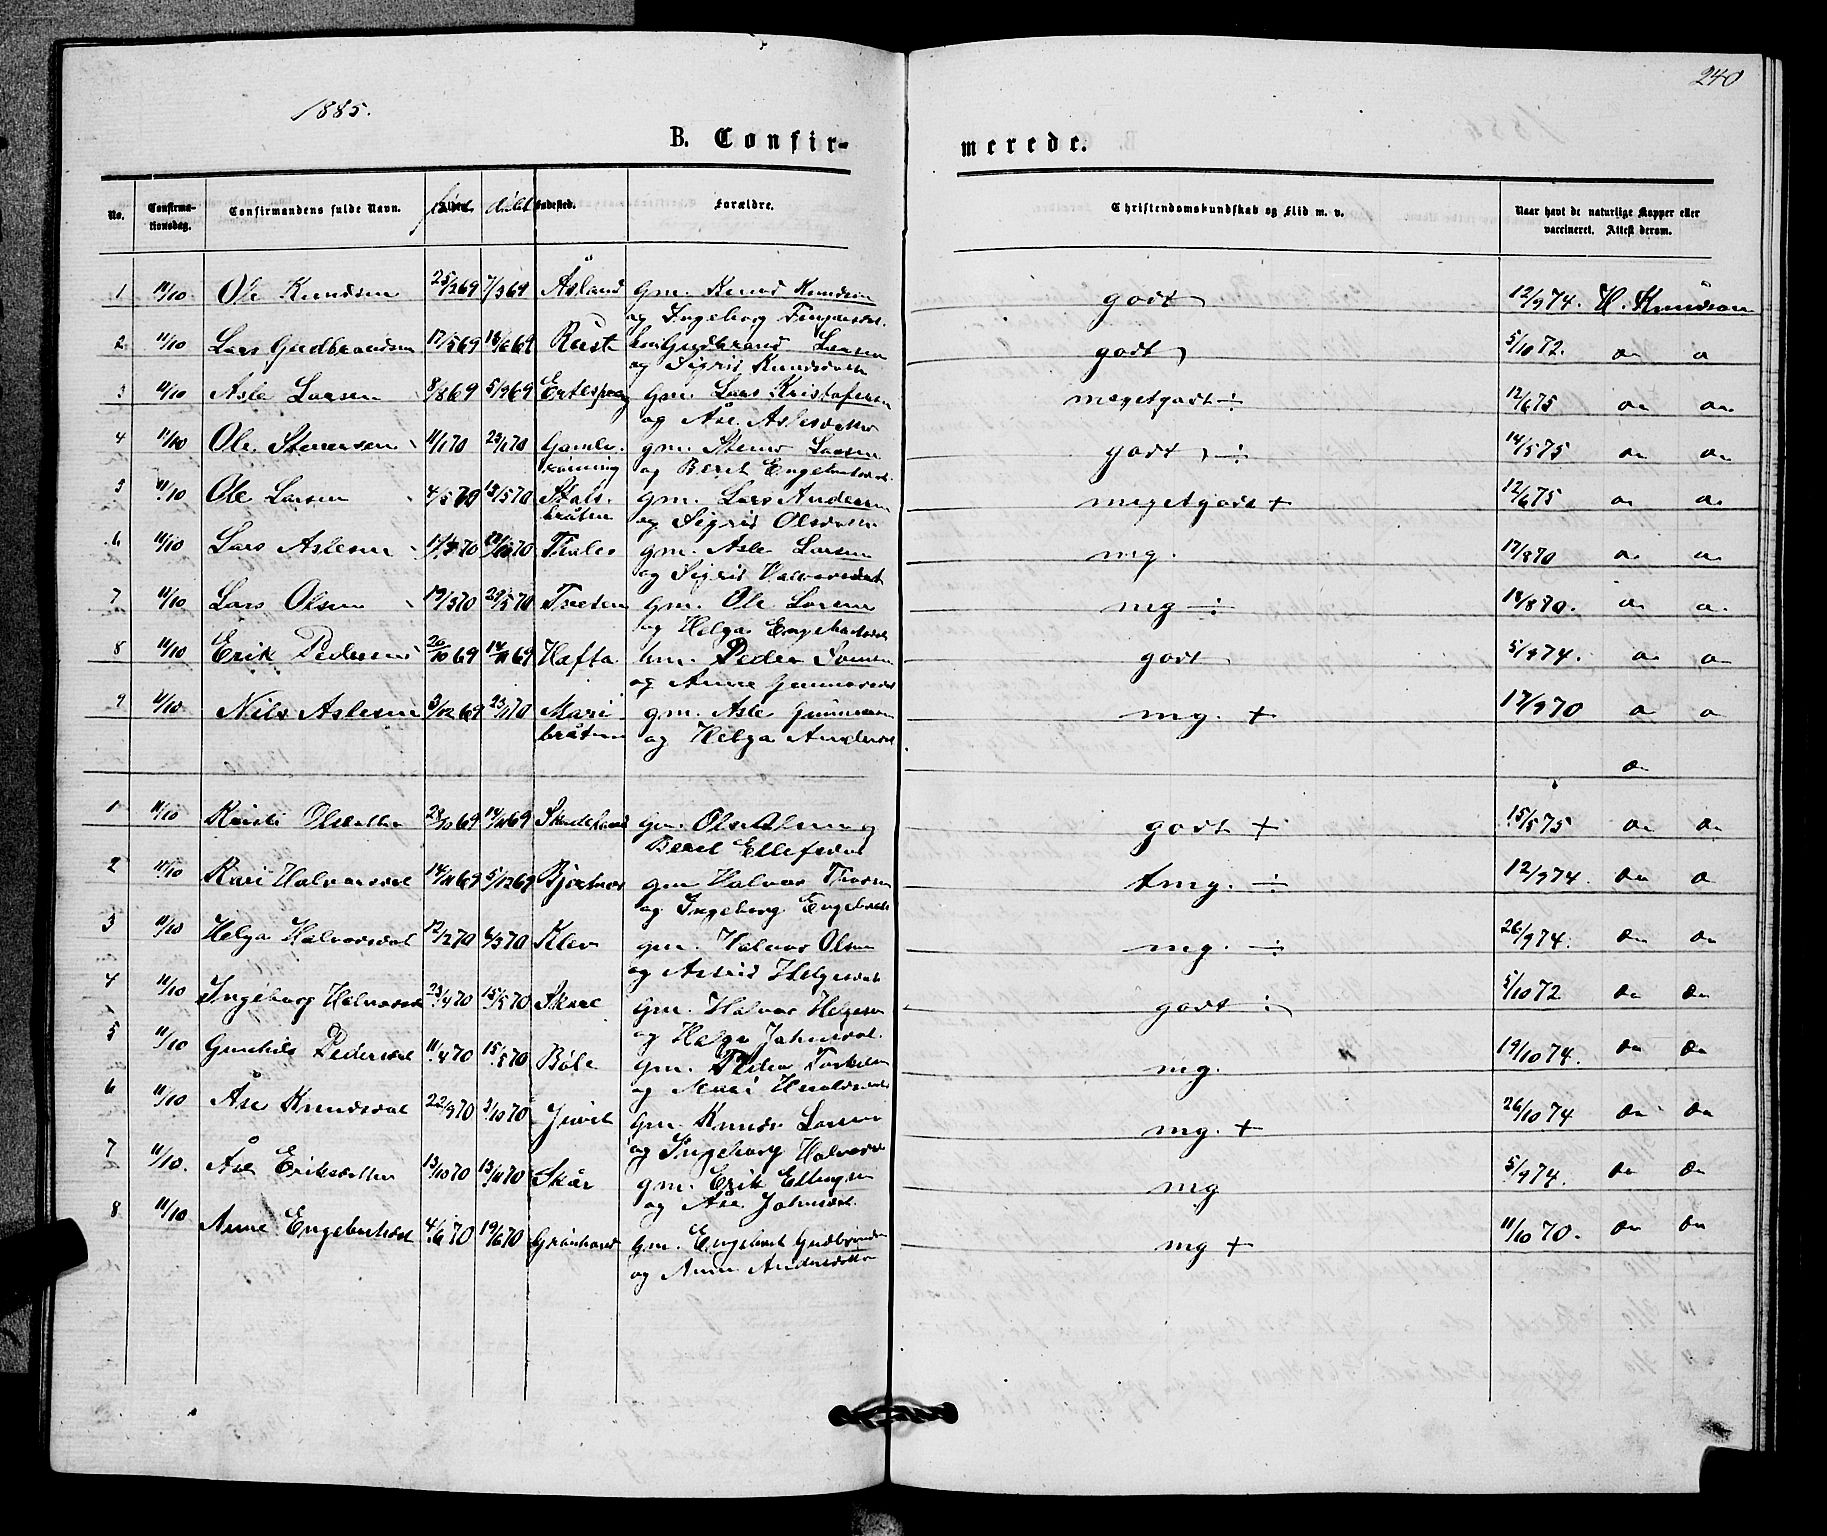 240
1885.
B. Confir- merede.
No. Confirma- tionsdag. Confirmandens fulde Navn. født døbt Fødested. Forældre. Christendomskundskab og Flid m. v. Naar havt de naturlige Kopper eller vaccineret. Attest derom.
1 11/10 Ole Knudsen 25/2 69 7/3 69 Åsland gm. Knud Knudsen godt 12/9 74. H. Knudsen
og Ingeborg
2 11/10 Lars Gudbrandsen 17/5 69 18/6 69 Rust Gudbrand Larsen godt 5/10 72. do do
og Sigrid Knudsdatter
3 11/10 Asle Larsen 8/8 69 5/9 69 gm. Lars Kristofersen megetgodt ÷ 12/6 75 do do
og Åse Aslesdatter
4 11/10 Ole Stenersen 11/1 70 23/1 70 Gamle- gm. Stener Larsen godt ÷ 14/5 75 do do
rønning og Berit Engebretsdat.
5 11/10 Ole Larsen 4/5 70 13/5 70 Skols- gm. Lars Andersen megetgodt + 12/6 75 do do
bråten og Sigrid Olsdatter
6 11/10 Lars Aslesen gm. Asle Larsen mg. 17/9 70 do do
og Sigrid Halvorsdat
7 11/10 Lars Olsen 19/3 70 29/5 70 gm. Ole Larsen mg ÷ 18/8 70. do do
og Helga Engebretsdat
8 11/10 Erik Pedersen 26/10 69 14/11 69 Hafta hm. Peder godt 5/9 74. do do
og Anne Gunnarsdat
9 11/10 Nils Aslesen 8/12 69 23/1 70 Mari- gm. Asle Gunnarsen mg. + 17/9 70 do do
bråten og Helga Andersdat
do
1 11/10 Olsdatter 23/10 69 14/11 69 gm. Ole Olsen og godt + 15/5 75 do do
Berit Ellefsdat
2 11/10 Kari Halvorsdat 14/11 69 5/12 69 gm Halvor tmg. ÷ 12/9 74. do do
og Ingeborg Engebretsd
3 11/10 Helga Halvorsdat 12/2 70 6/3 70 Klev gm. Halvor Olsen mg. ÷ 26/9 74. do do
og Astrid Helgesdat
4 11/10 Ingeborg Halvorsdat 23/4 70 15/5 70 gm. Halvor Helgesen godt 5/10 72 do do
og Helga Johnsdat.
5 11/10 Gunhild Pedersdat 11/4 70 15/5 70 Bøle gm. Peder Torkelsen mg. 19/10 74. do do
og Mari
6 11/10 Åse Knudsdat 22/9 70 2/10 70 gm. Knud Larsen mg. + 26/10 74 do do
og Ingeborg Halvorsd
7 11/10. Åse Eriksdatter 13/10 70 13/11 70 Skår gm. Erik Ellingsen mg 5/9 74. do do
og Åse Johnsdat.
8 11/10 Anne Engebretsdat 4/6 70 19/6 70 gm. Engebret Gudbrandsen mg + 11/10 70. do do
og Anne Andersdatter